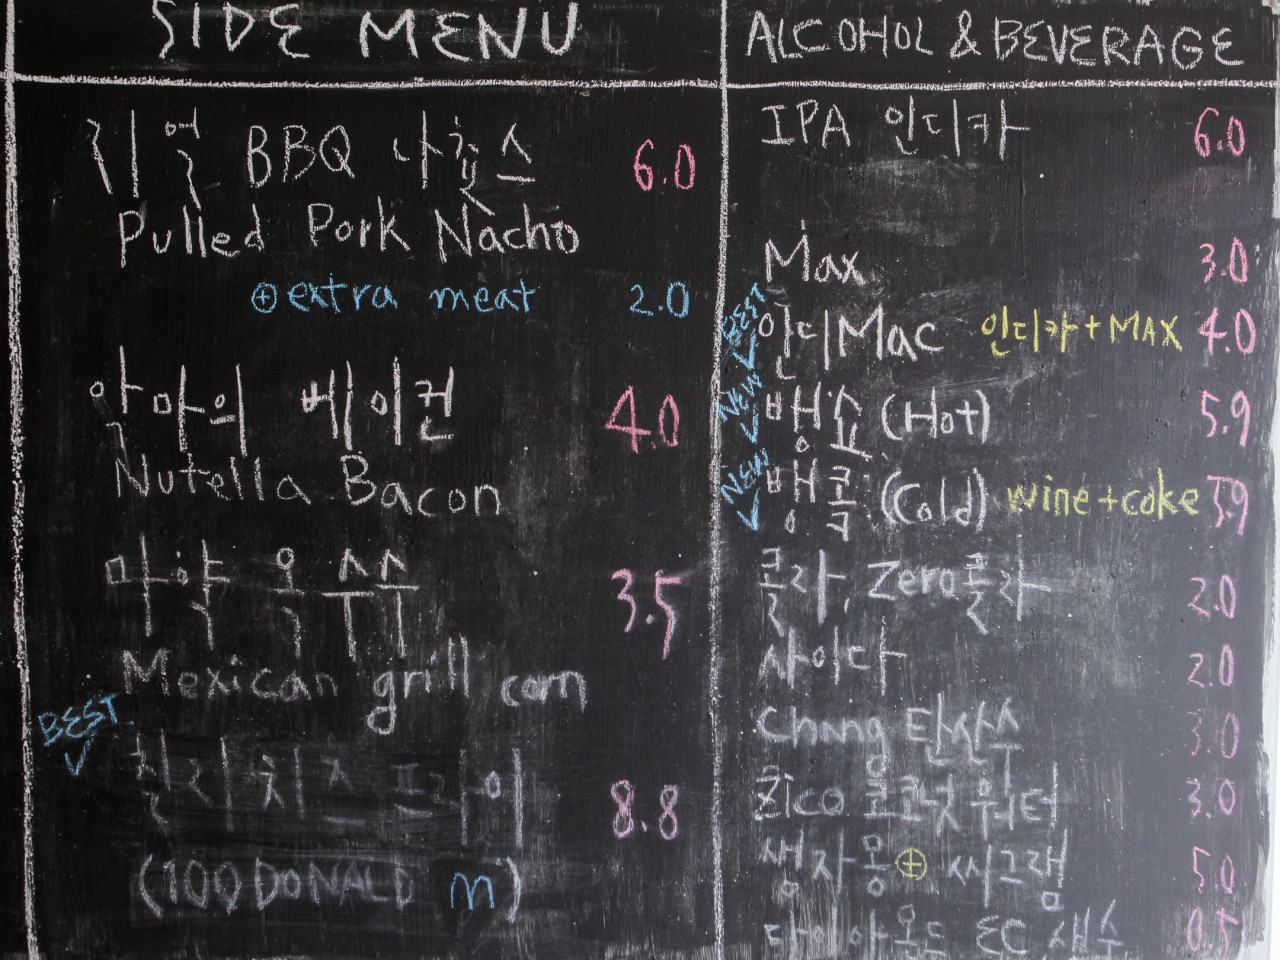 SIDE MENU
리얼 BBQ 나쵸스 6.0
Pulled Pork Nacho
⊕ extra meat 2.0
악마의 베이컨 4.0
Nutella Bacon
마약 옥수수 3.5
Mexican grill corn
BEST
칠리치즈 프라이 8.8
(100 DONALD m)
ALCOHOL & BEVERAGE
IPA 인디카 6.0
Max 3.0
BEST 인디Mac 인디카+MAX 4.0
NEW 뱅쇼 (Hot) 5.9
NEW 뱅콕 (Cold) wine+coke 5.9
콜라, Zero콜라 2.0
사이다 2.0
Chang 탄산수 3.0
Zico 코코넛 워터 3.0
생자몽 ⊕ 씨그램 5.0
다이아몬드 EC 생수 0.5